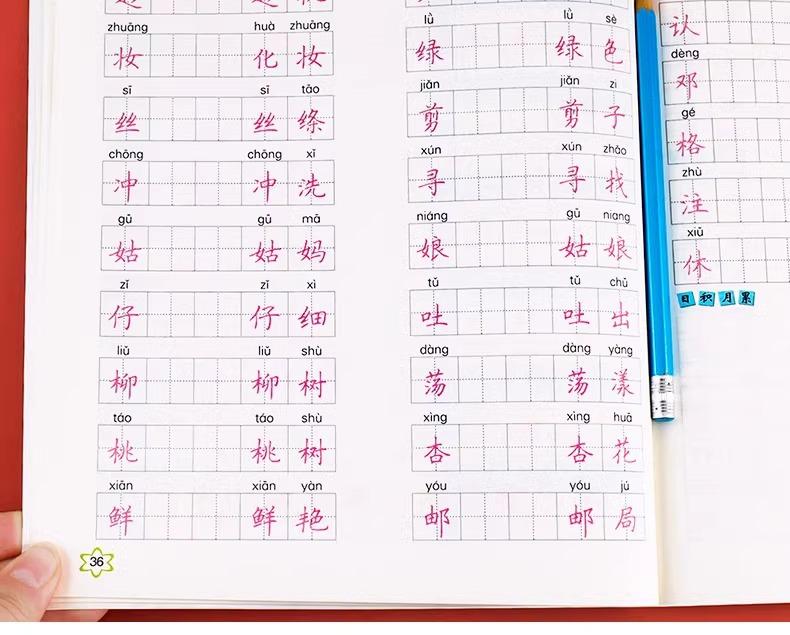 zhuāng huà zhuāng
妆 化 妆
sī sī tāo
丝 丝 绦
chōng chōng xǐ
冲 冲 洗
gū gū mā
姑 姑 妈
zǐ zǐ xì
仔 仔 细
liǔ liǔ shù
柳 柳 树
táo táo shù
桃 桃 树
xiān xiān yàn
鲜 鲜 艳
36
lǜ lǜ sè
绿 绿 色
jiǎn jiǎn zi
剪 剪 子
xún xún zhǎo
寻 寻 找
niáng gū niang
娘 姑 娘
tǔ tǔ chū
吐 吐 出
dàng dàng yàng
荡 荡 漾
xìng xìng huā
杏 杏 花
yóu yóu jú
邮 邮 局
认
dèng
邓
gé
格
zhù
注
xiū
休
日积月累